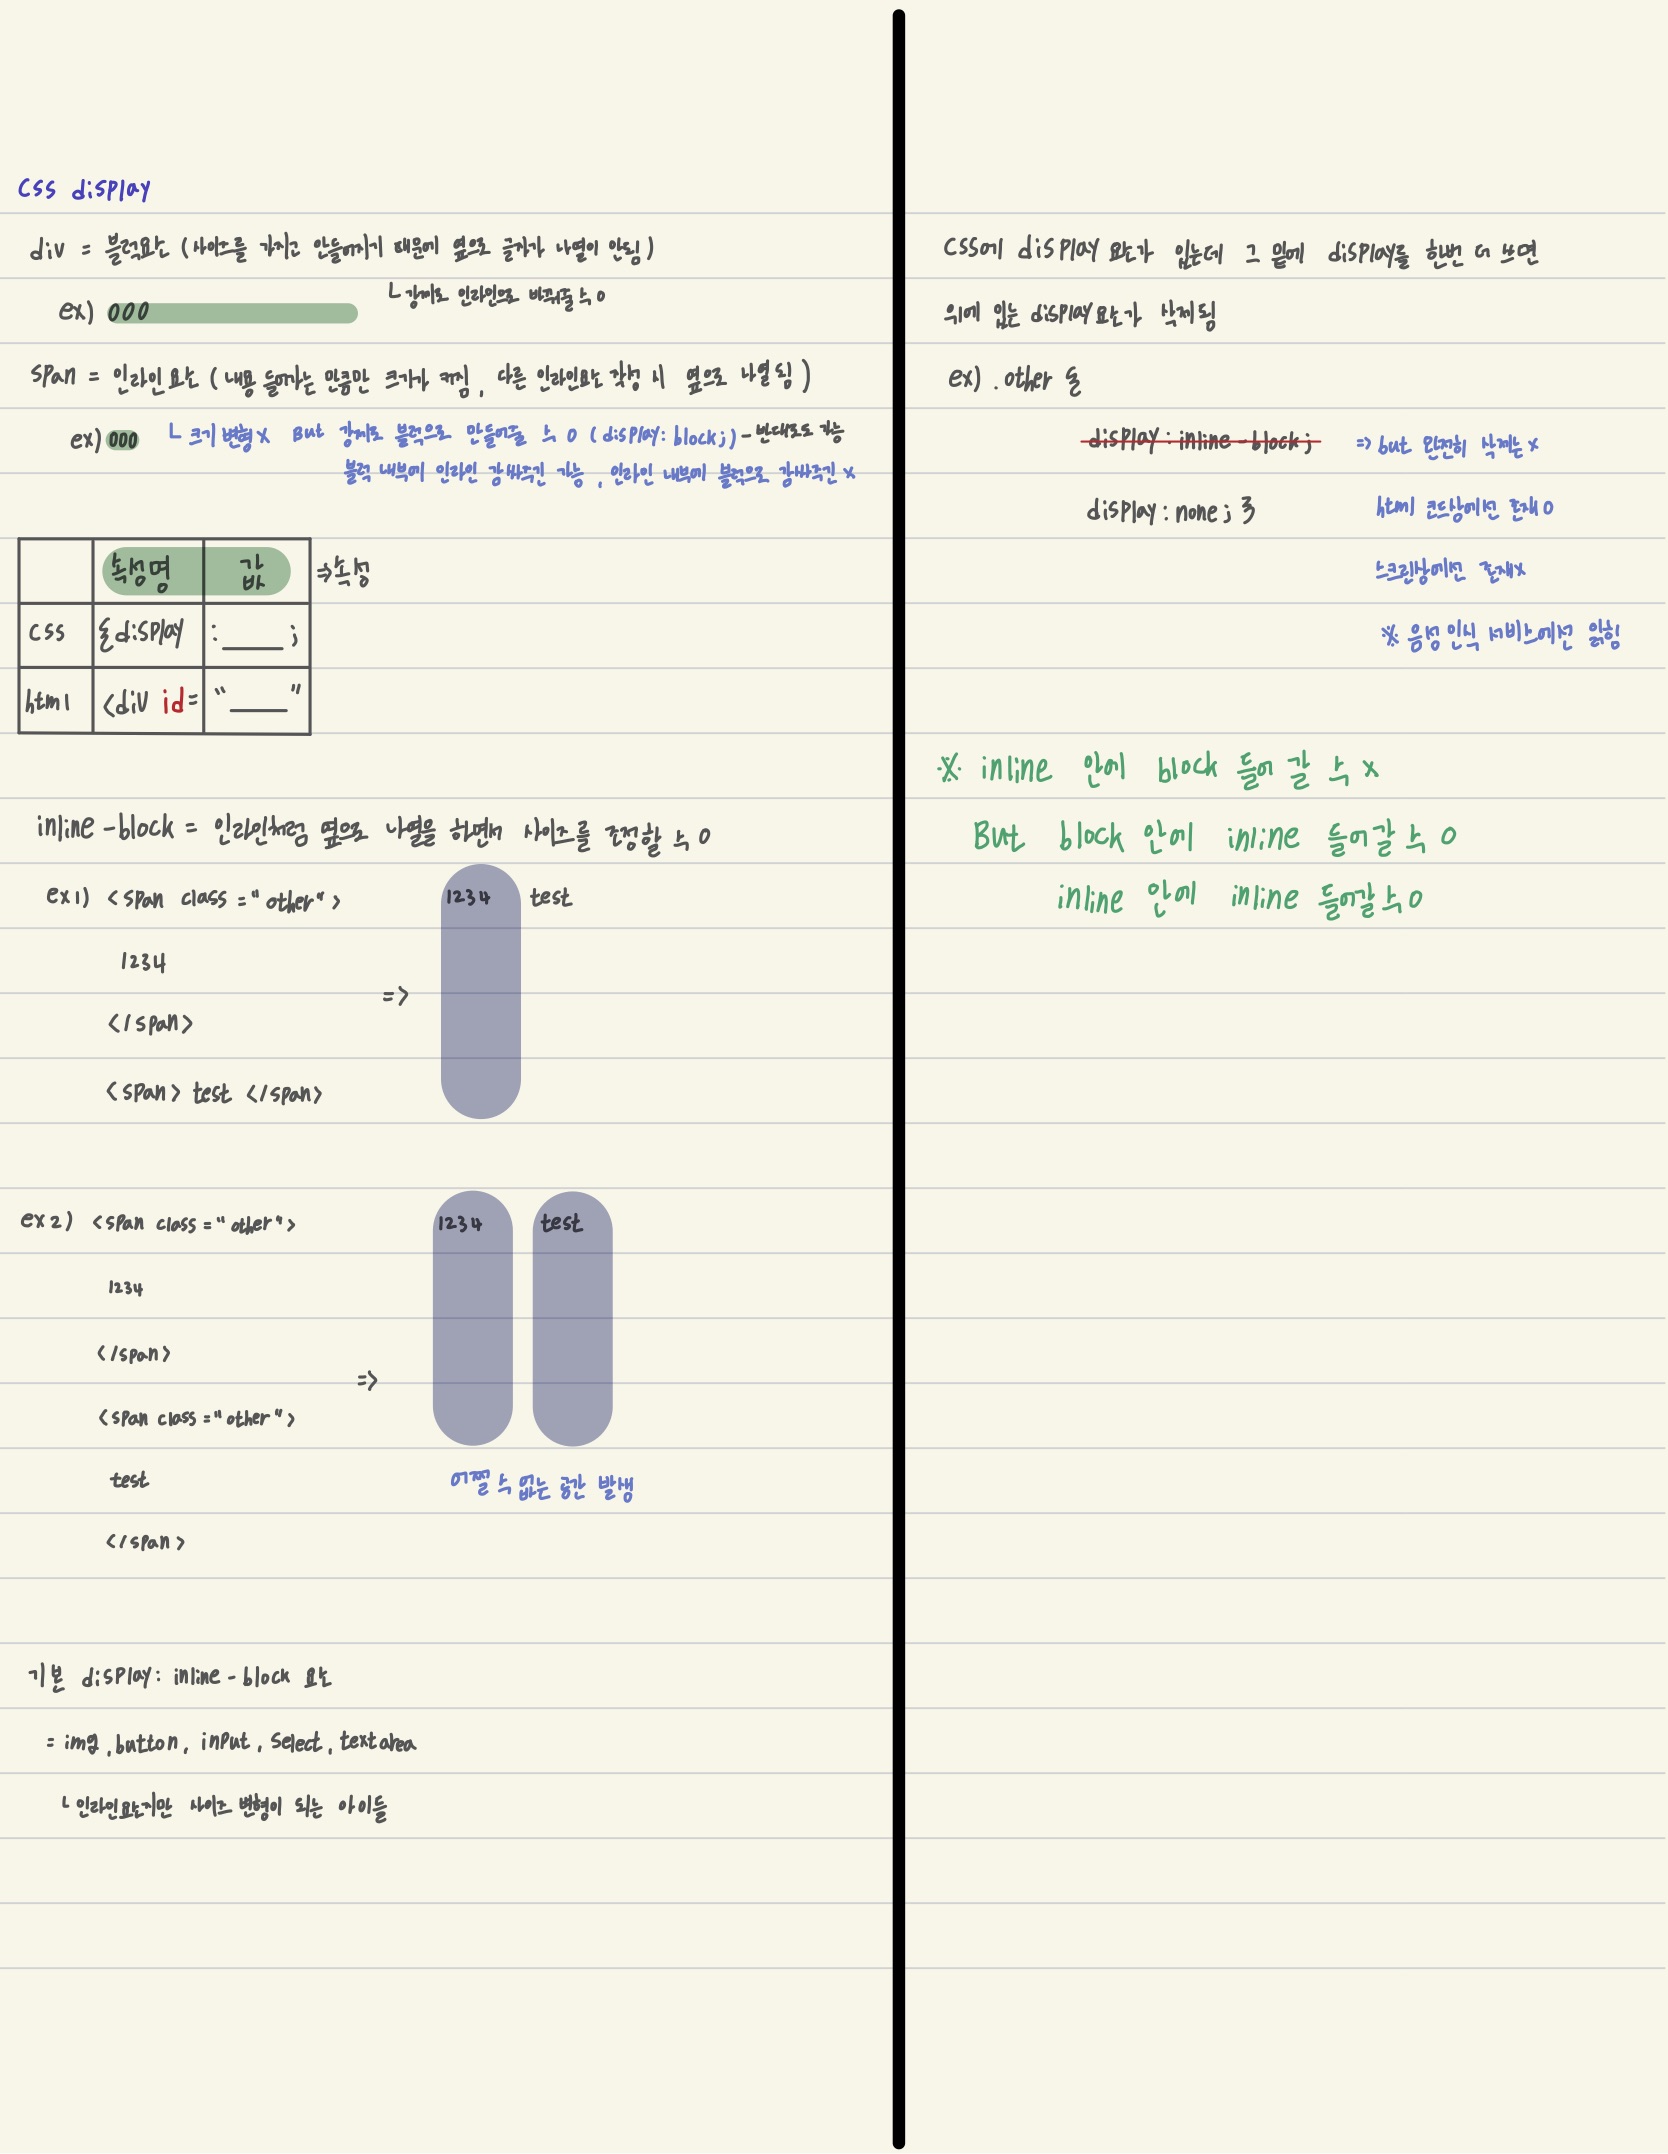 css display
div = 블럭요소 (사이즈를 가지고 만들어지기 때문에 옆으로 글자가 나열이 안됨)
ㄴ강제로 인라인으로 바꿔줄 수 O
ex) 000
span = 인라인 요소 (내용 들어가는 만큼만 크기가 커짐, 다른 인라인요소 작성 시 옆으로 나열됨)
ex) 000 ㄴ크기 변형 X But 강제로 블럭으로 만들어줄 수 O (display: block;) - 반대로도 가능
블럭 내부에 인라인 감싸주긴 가능, 인라인 내부에 블럭으로 감싸주긴 X
속성명 값 => 속성
css {display : ____ ;
html <div id= "____"
inline-block = 인라인처럼 옆으로 나열을 하면서 사이즈를 조정할 수 O
ex1) <span class="other">
1234 test
1234
=>
</span>
<span> test </span>
ex2) <span class="other">
1234 test
1234
</span>
=>
<span class="other">
test
어쩔 수 없는 공간 발생
</span>
기본 display: inline-block 요소
= img, button, input, select, textarea
ㄴ인라인요소지만 사이즈 변형이 되는 아이들
css에 display 요소가 있는데 그 밑에 display를 한번 더 쓰면
위에 있는 display요소가 삭제됨
ex) .other {
display: inline-block; => but 완전히 삭제는 X
display: none; } html 코드상에선 존재 O
스크린상에선 존재X
※ 음성 인식 서비스에선 읽힘
※ inline 안에 block 들어 갈 수 X
But block 안에 inline 들어갈 수 O
inline 안에 inline 들어갈 수 O